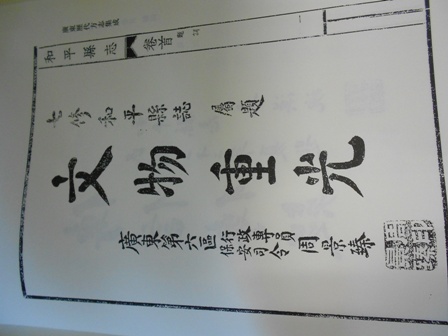 廣東歷代方志集成
和平縣志 卷首 題字 一
七修和平縣誌 屬題
文物重光
廣東第六區行政專員保安司令周景臻